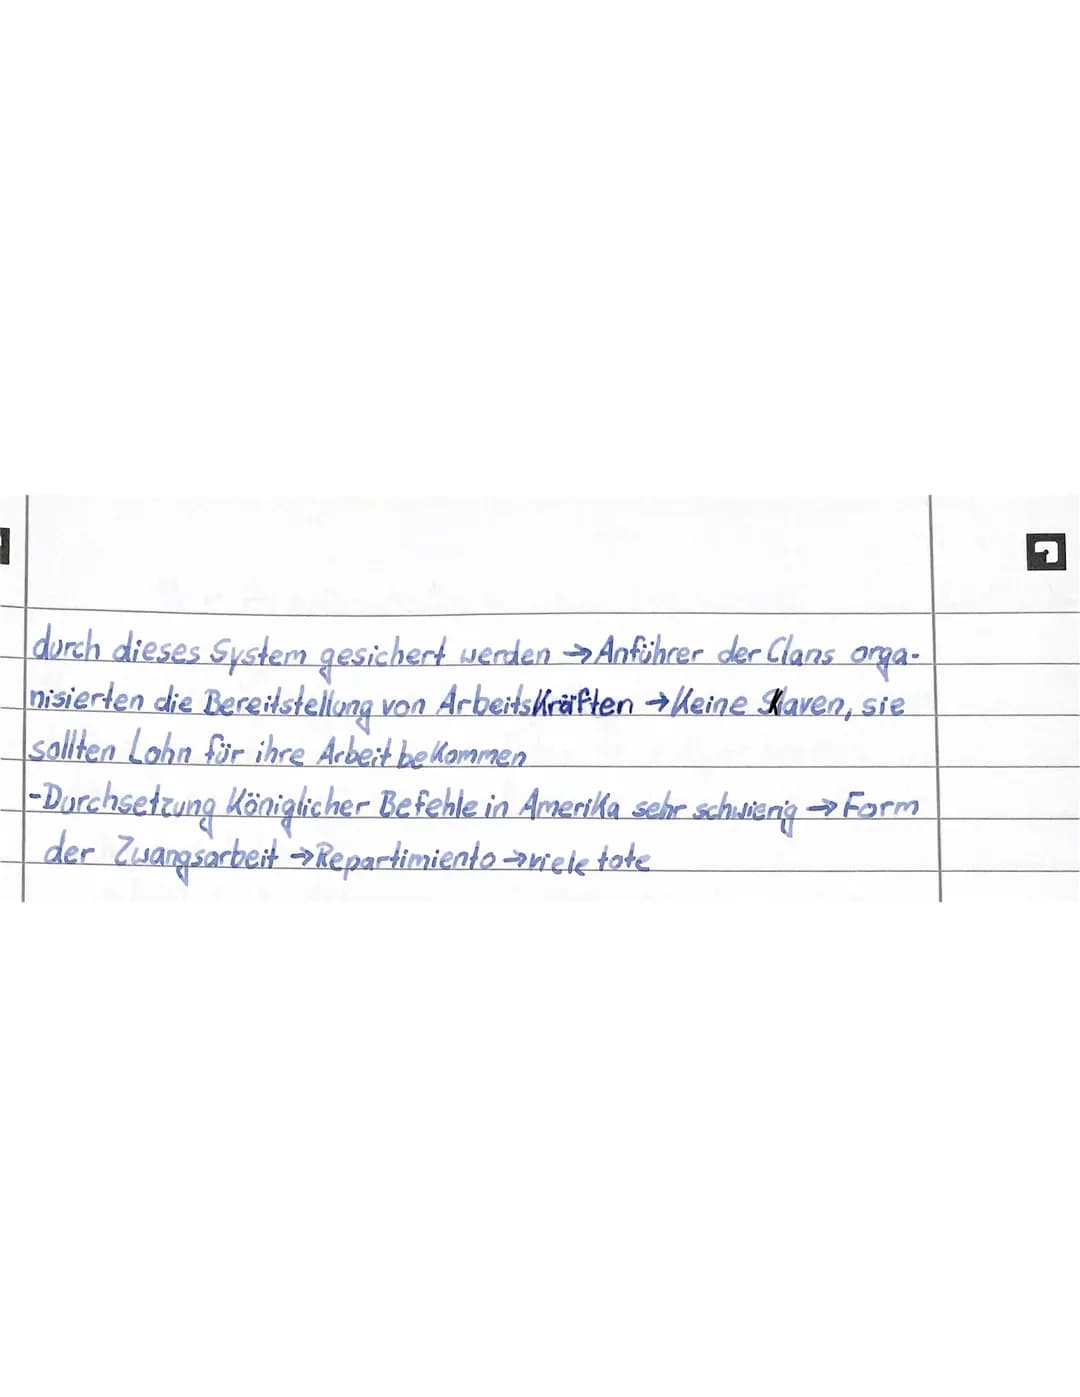 durch dieses System gesichert werden → Anführer der Clans orga-
nisierten die Bereitstellung von Arbeitskräften → Keine Sklaven, sie
sollten Lohn für ihre Arbeit bekommen
-Durchsetzung Königlicher Befehle in Amerika sehr schwierig → Form
der Zwangsarbeit → Repartimiento → viele tote